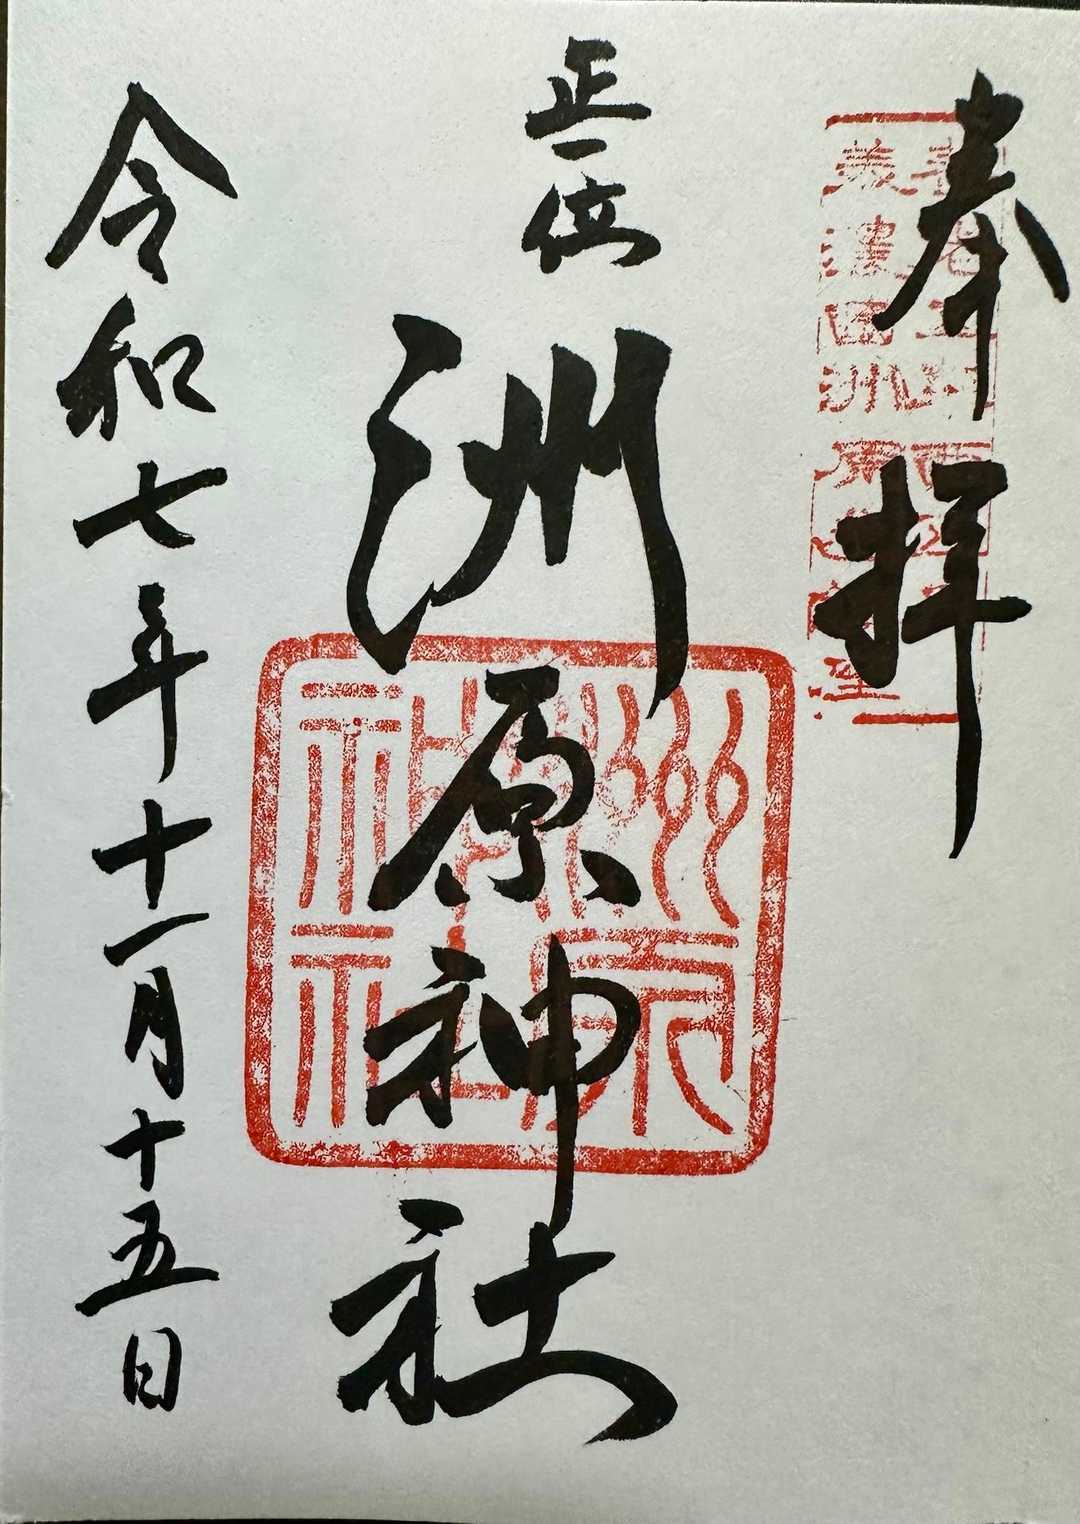 奉拝
正一位
洲原神社
令和七年十一月十五日
洲原
神社